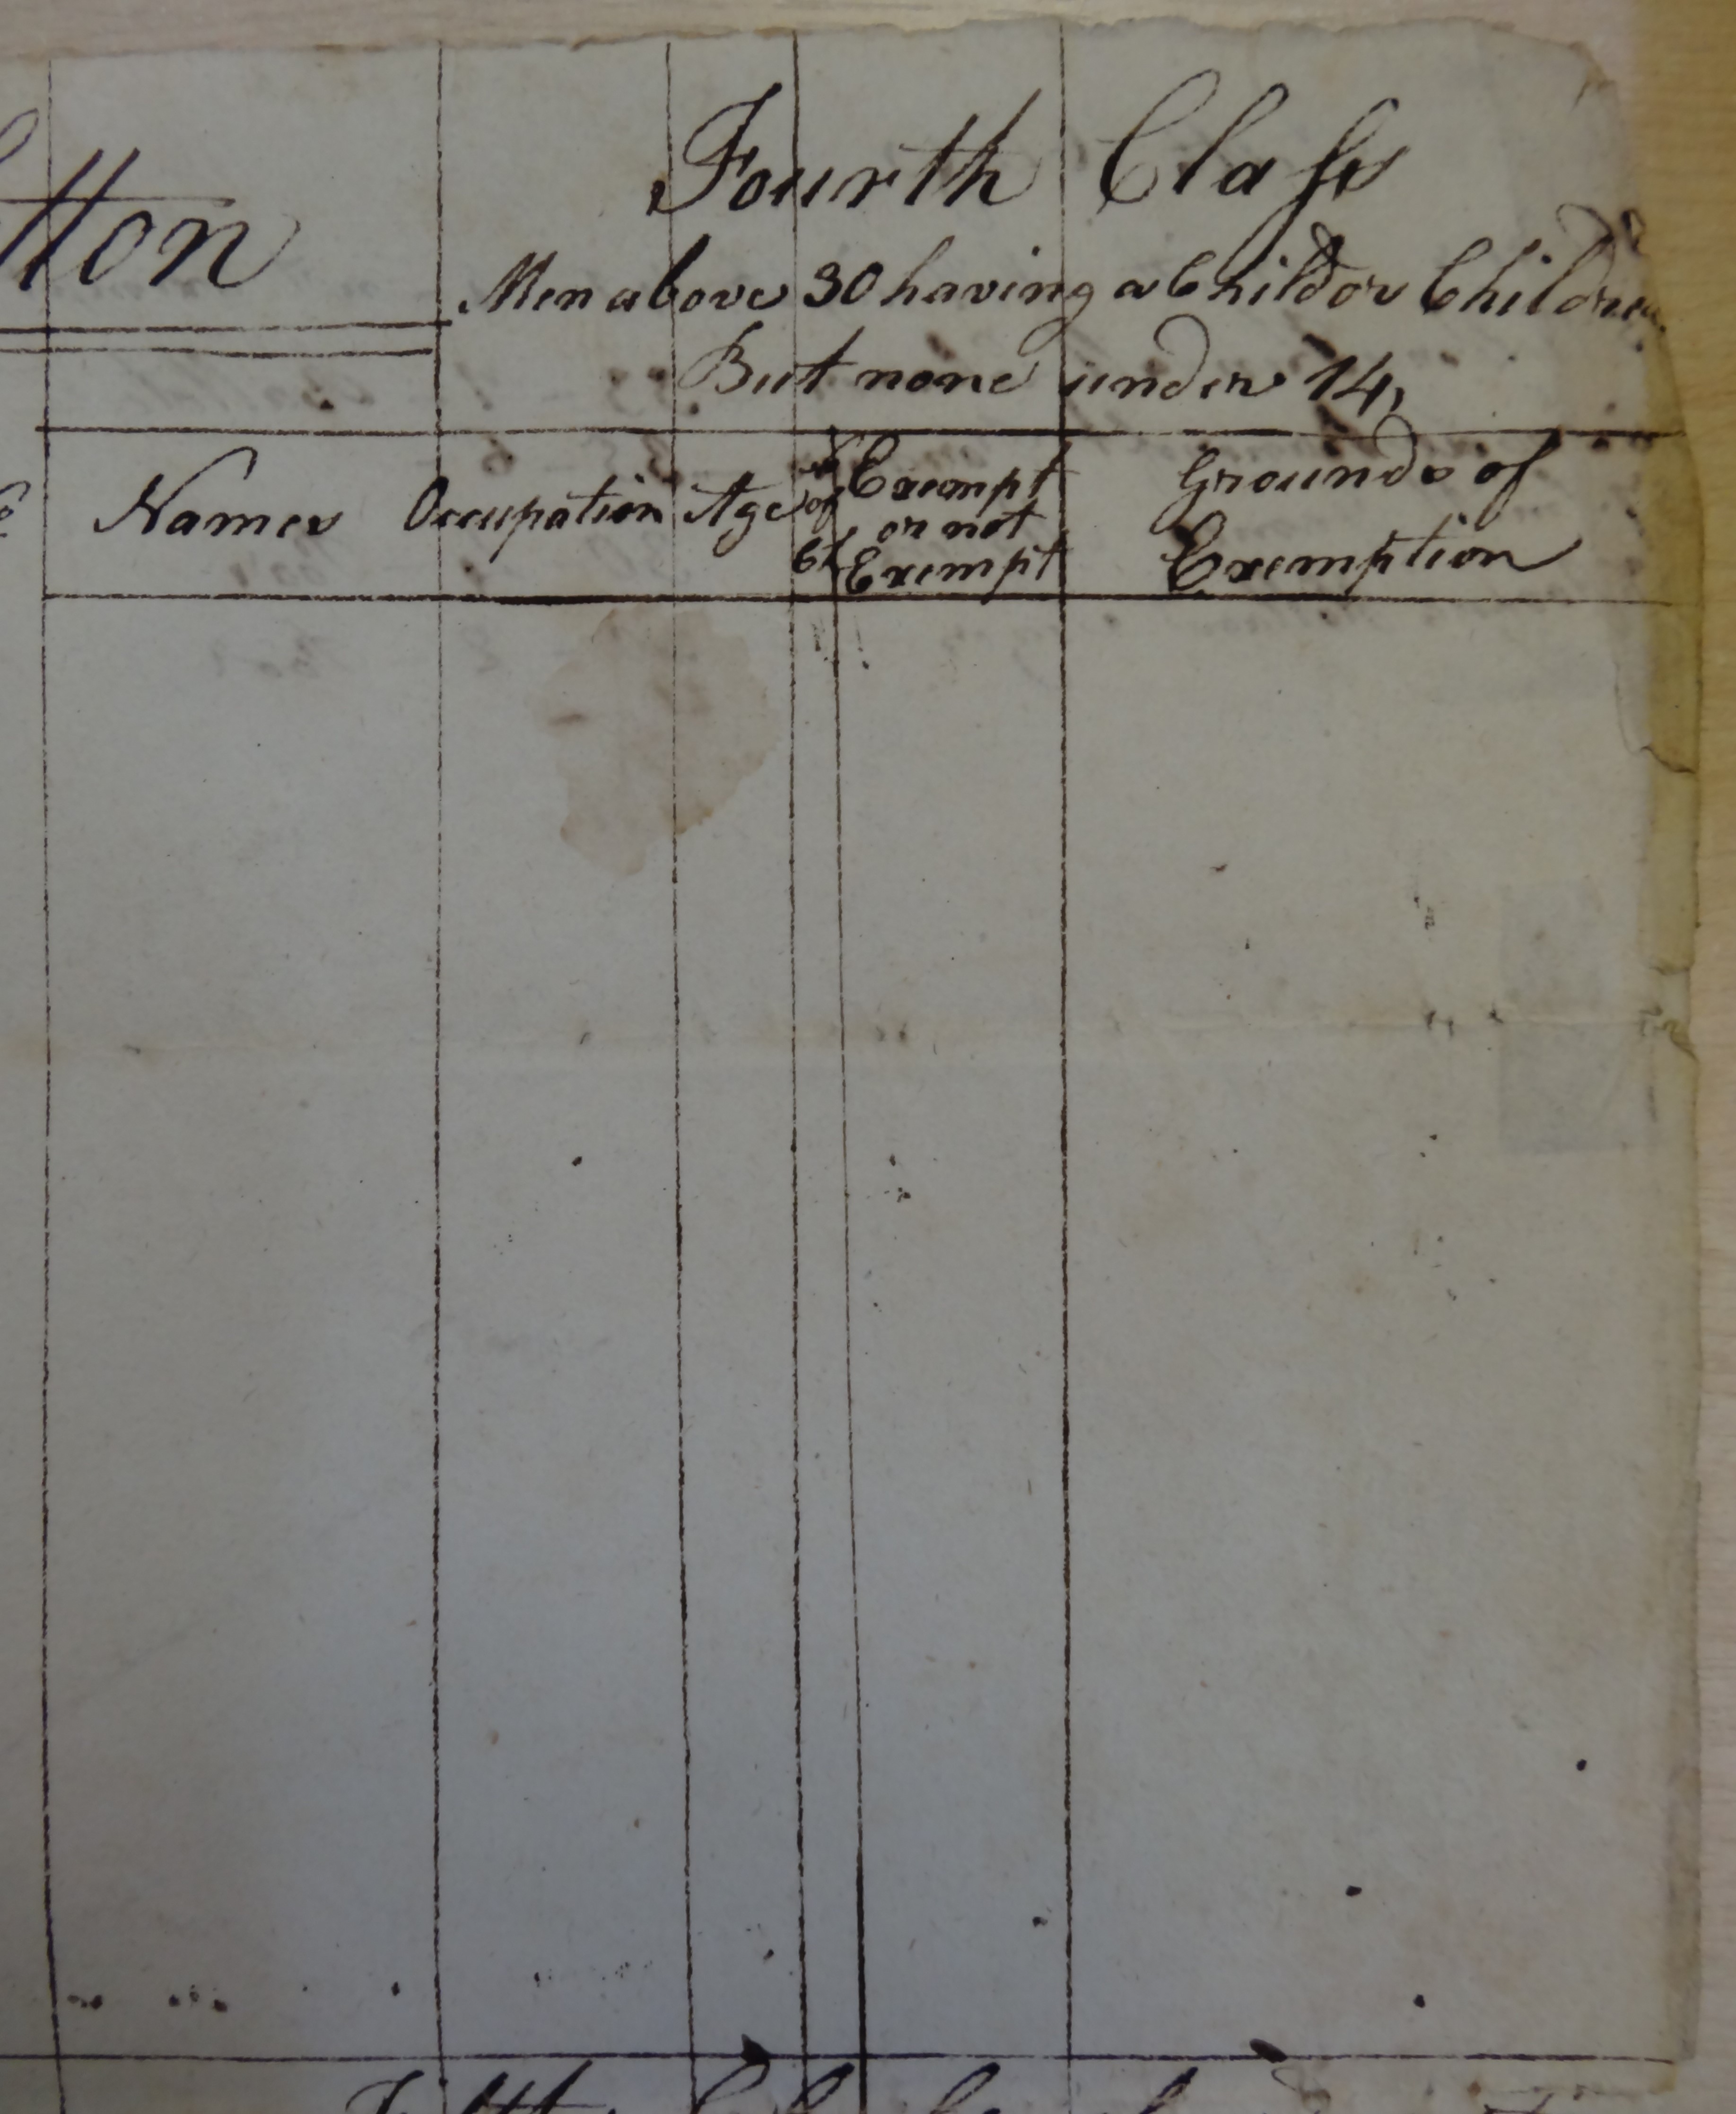 tton
Fourth Class
Men above 30 having a Child or Children
But none under 14,
Names Occupation Age No of Ch Exempt or not Exempt Grounds of Exemption